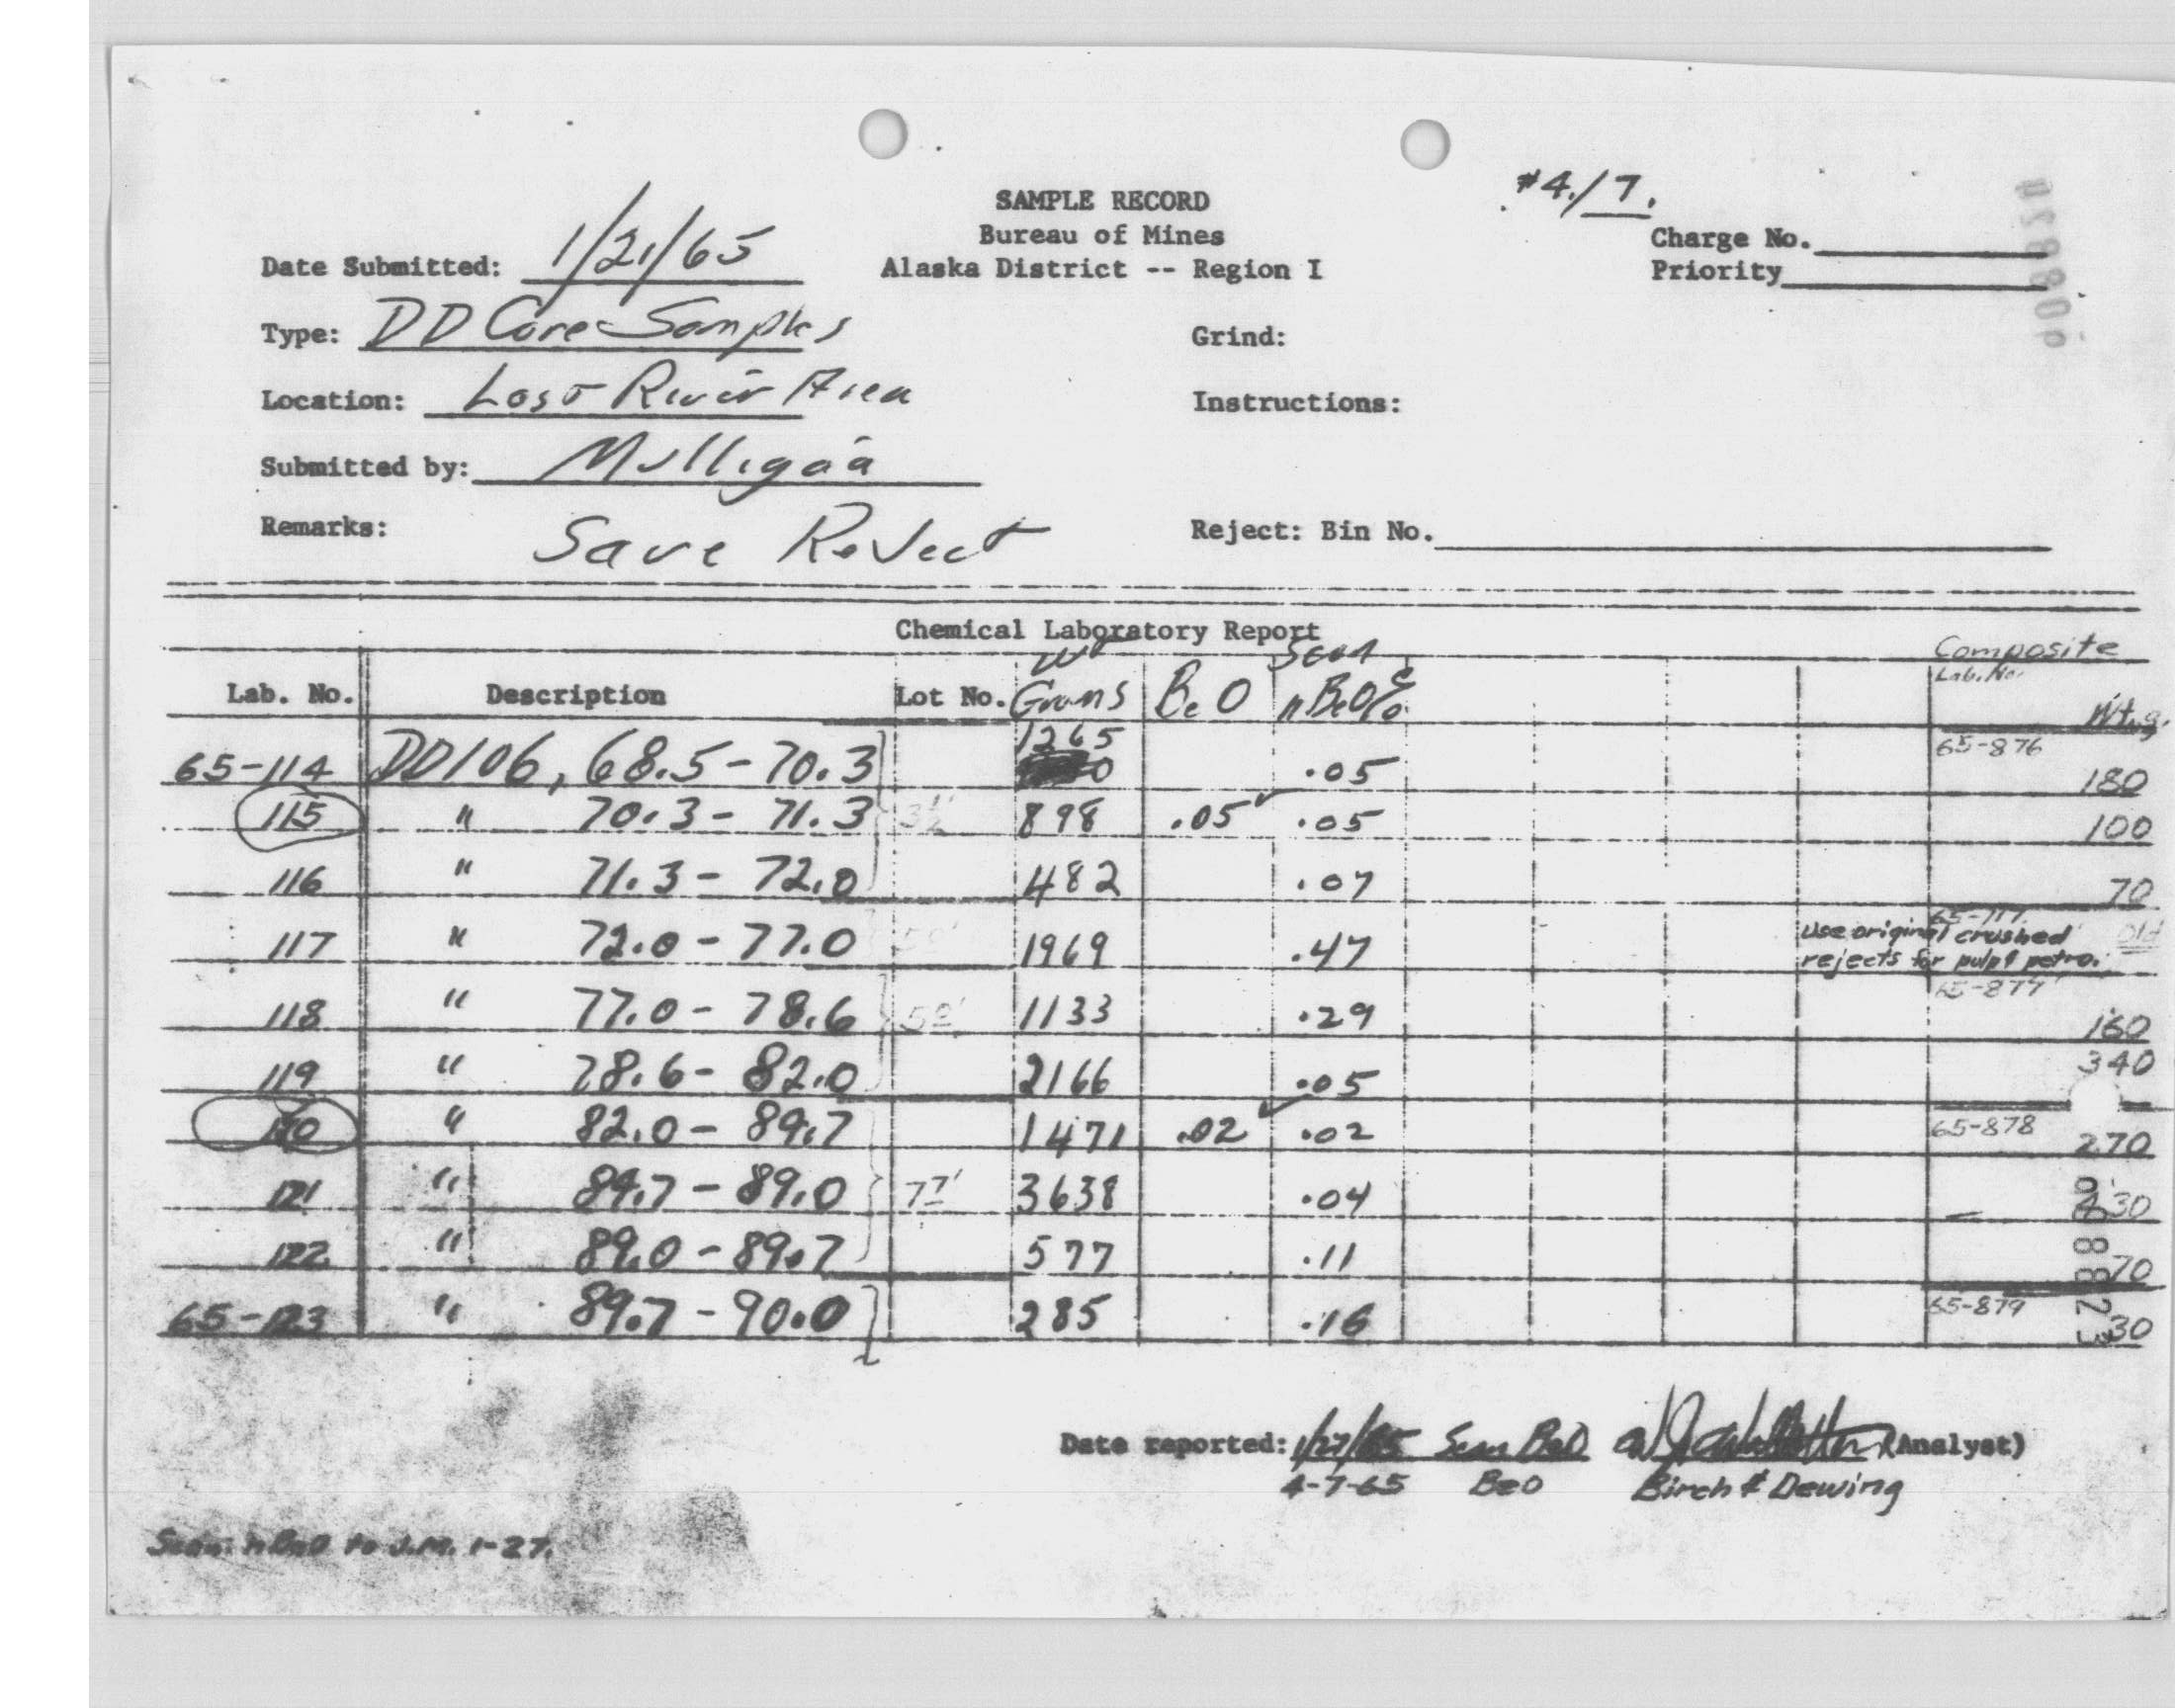 #4./7.
SAMPLE RECORD
Bureau of Mines
Alaska District -- Region I
Charge No.
Priority
Date Submitted: 1/21/65
Type: DD Core Samples
Grind:
Location: Lost River Area
Instructions:
Submitted by: Mulligan
Remarks: Save Reject
Reject: Bin No.
Chemical Laboratory Report
Composite
Lab. No. Description Lot No. Wt Grams BeO Scan nBeO% Lab. No. Wt. g.
65-114 DD106, 68.5-70.3 1265 .05 65-876 180
115 " 70.3-71.3 3½' 898 .05 .05 100
116 " 71.3-72.0 482 .07 70
117 " 72.0-77.0 1969 .47 65-117
Use original crushed old
rejects for pulp & petro.
118 " 77.0-78.6 5.0' 1133 .29 65-877 160
119 " 78.6-82.0 2166 .05 340
120 " 82.0-89.7 1471 .02 .02 65-878 270
121 " 84.7-89.0 7.7' 3638 .04 30
122 " 89.0-89.7 577 .11 70
65-123 " 89.7-90.0 285 .16 65-879 30
Date reported: 1/27/65 Scan BeO (Analyst)
4-7-65 BeO Birch & Dewing
Scan nBeO to J.M. 1-27.